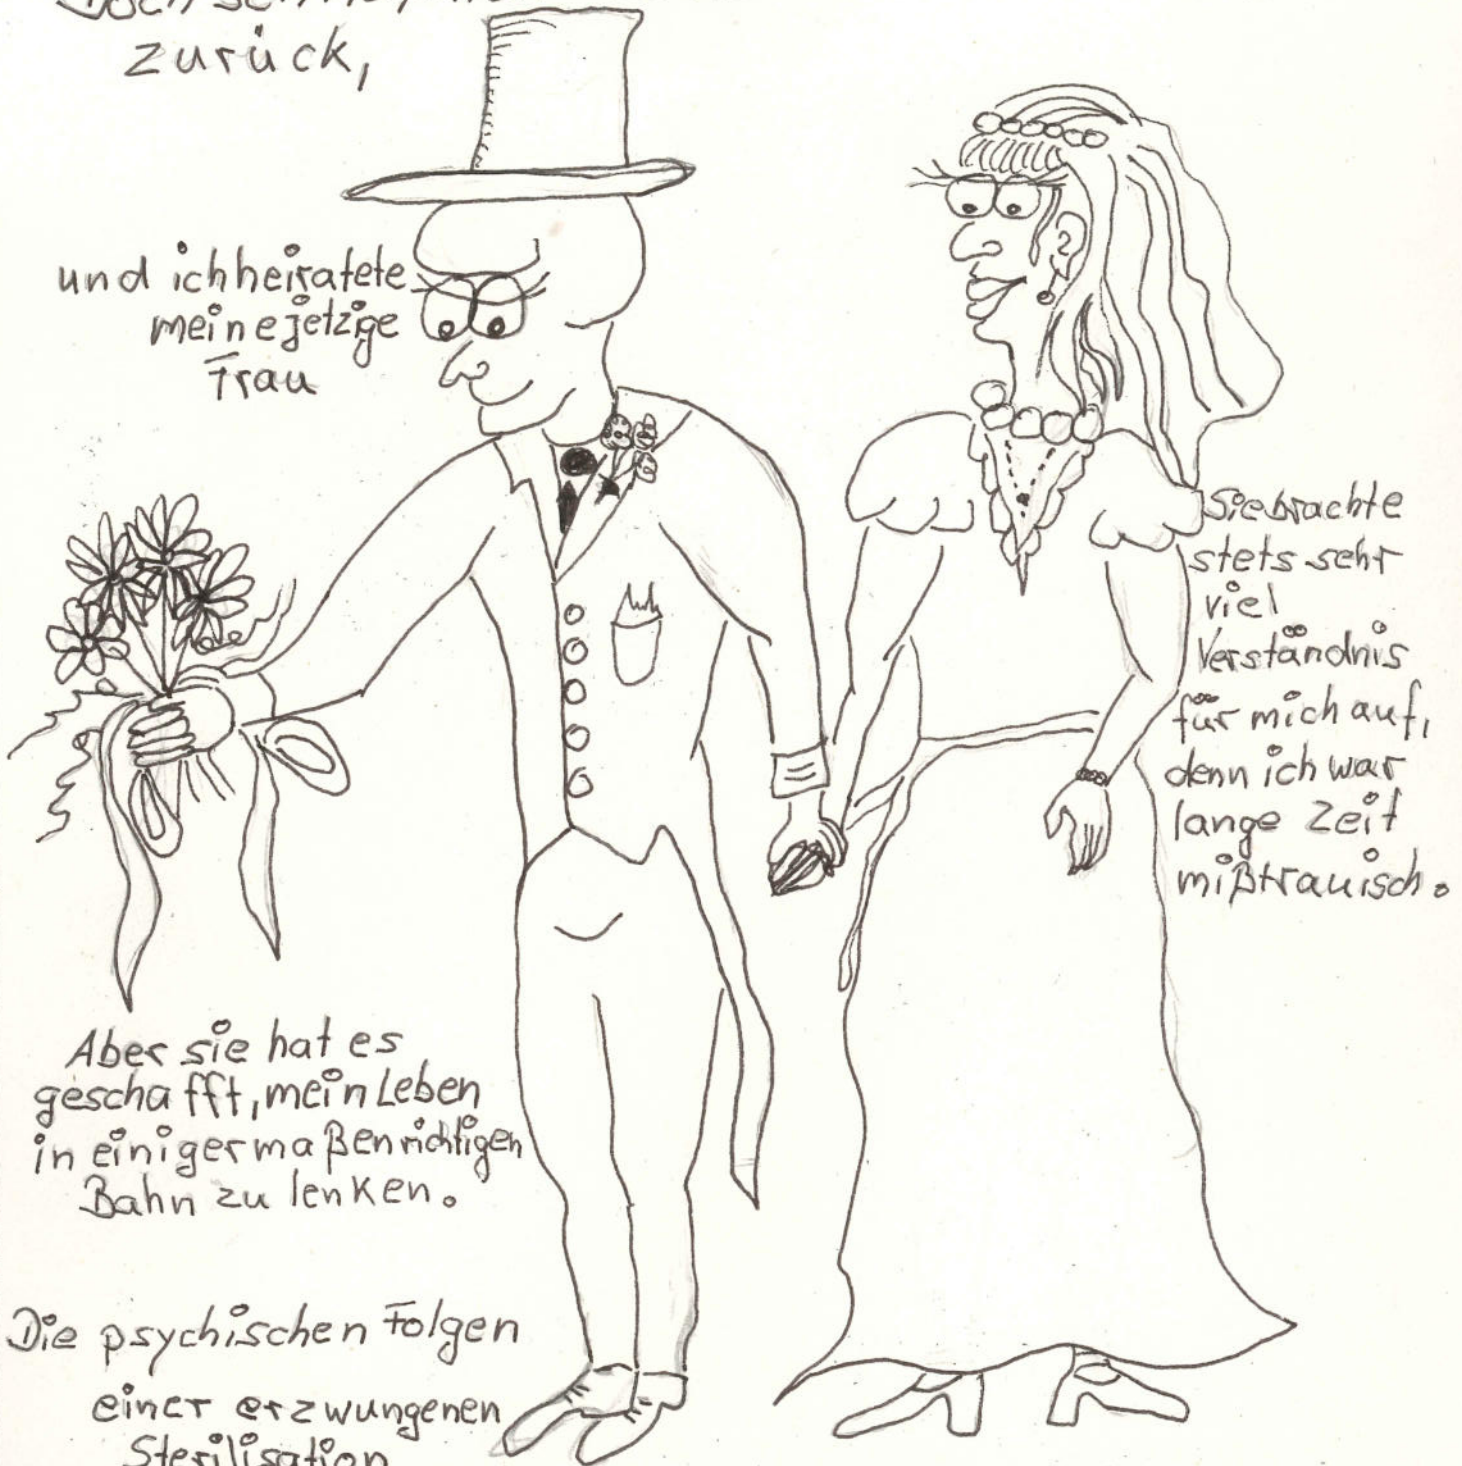 Doch
zurück,
und ich heiratete
meine jetzige
Frau
Sie brachte
stets sehr
viel
Verständnis
für mich auf,
denn ich war
lange Zeit
mißtrauisch.
Aber sie hat es
geschafft, mein Leben
in einigermaßen richtigen
Bahn zu lenken.
Die psychischen Folgen
einer erzwungenen
Sterilisation